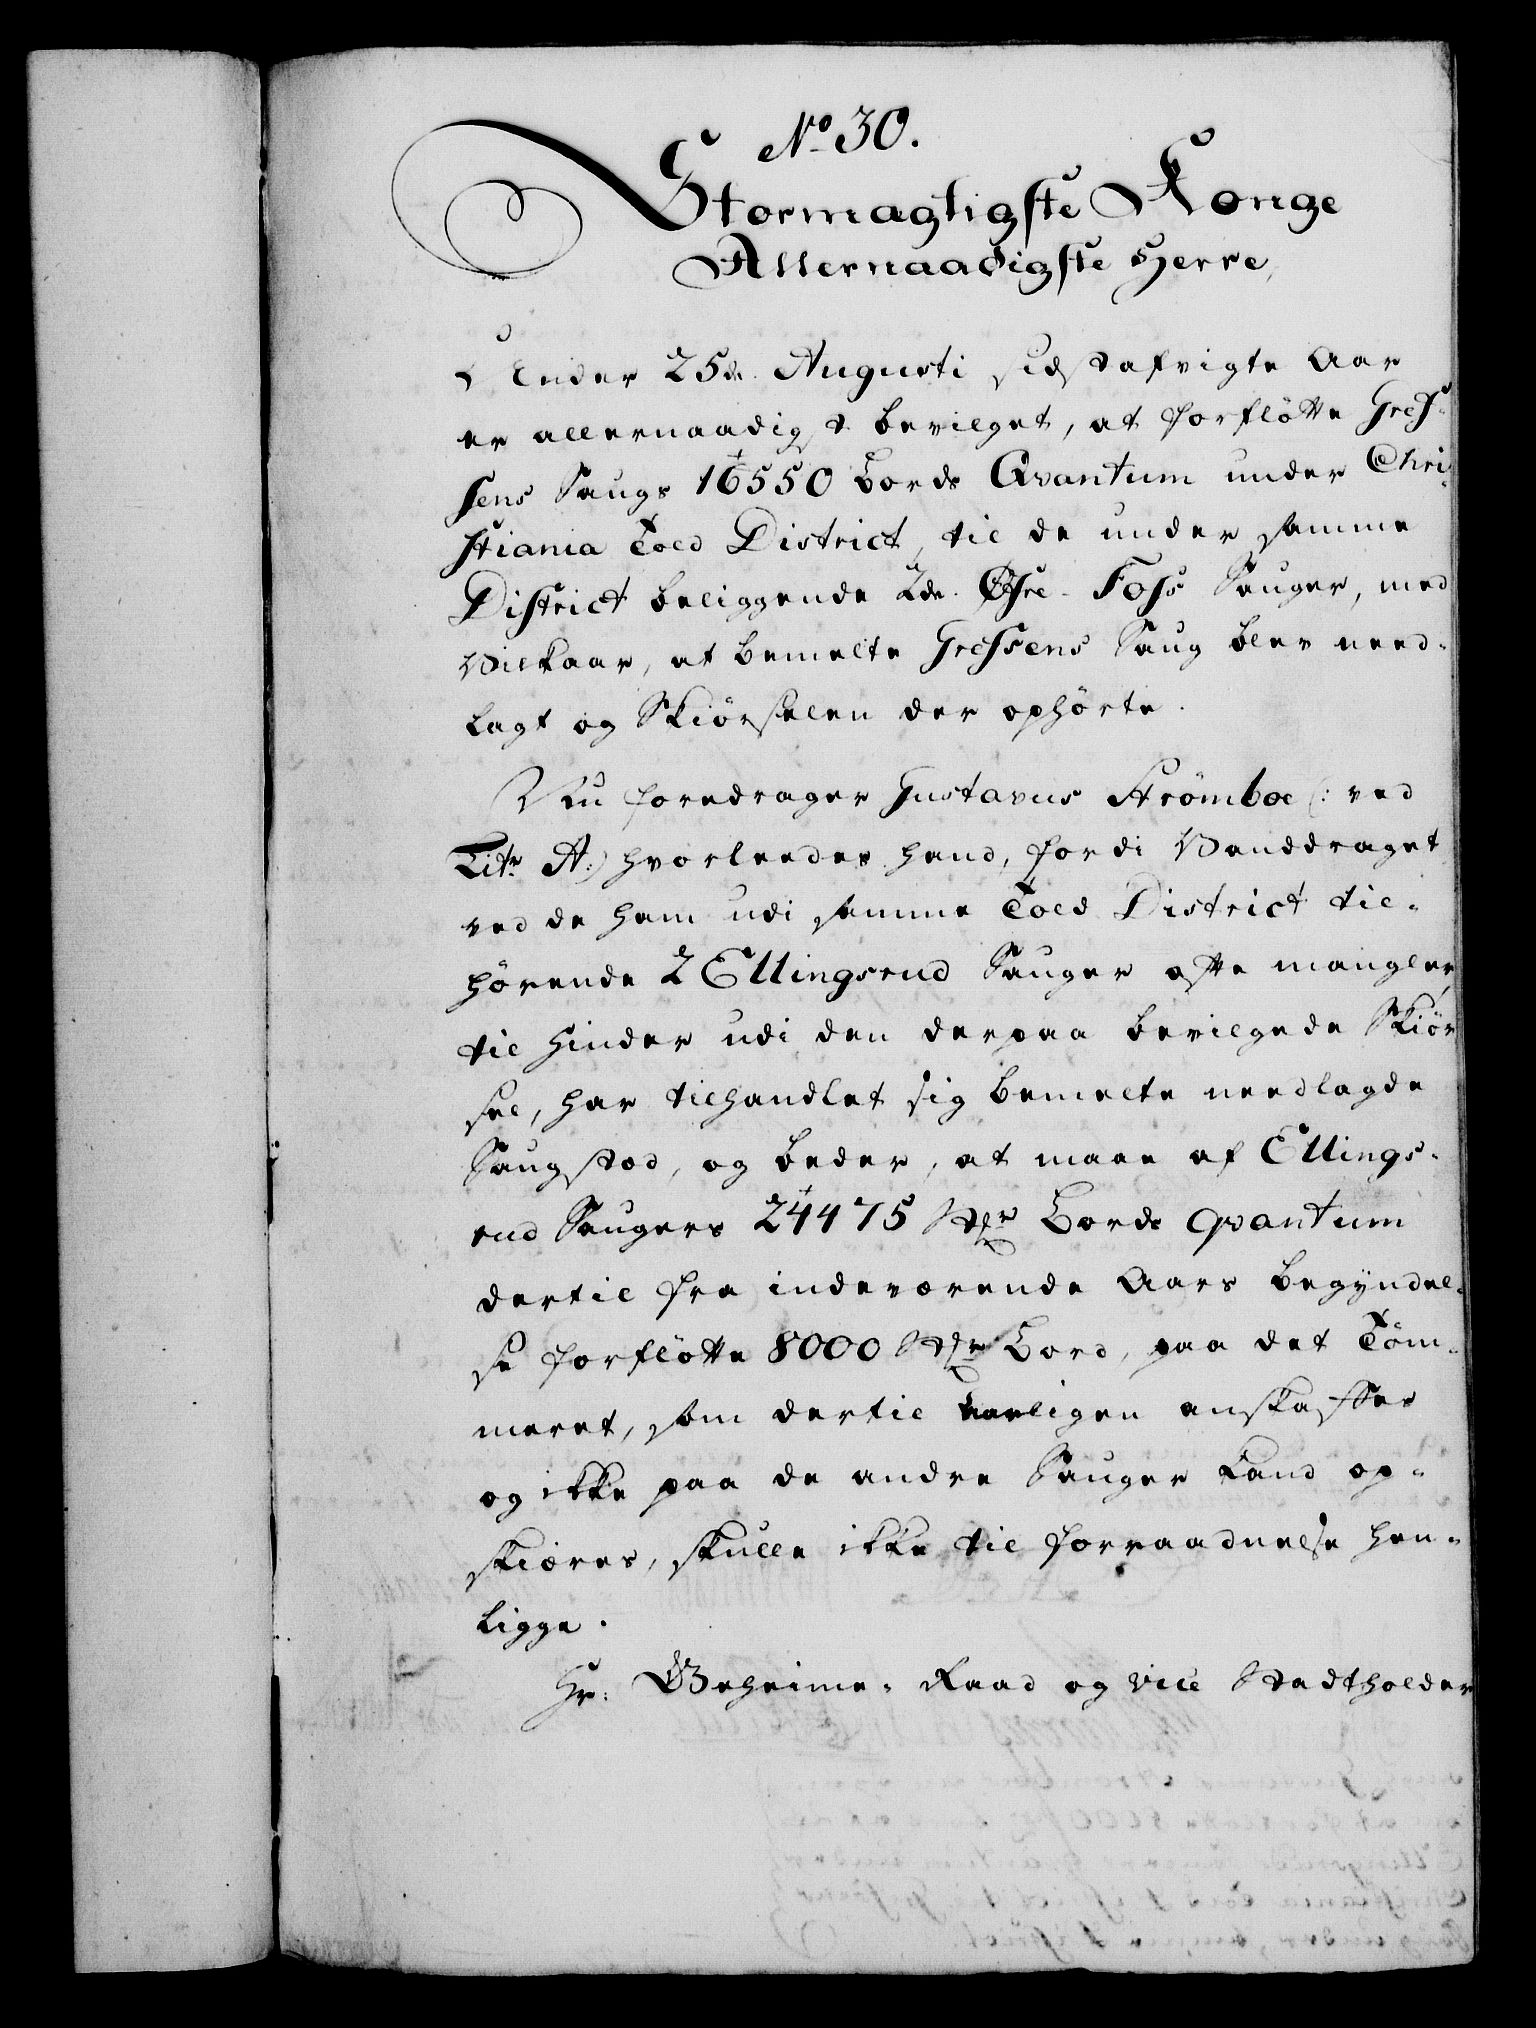 No 30.
Stormagtigste Konge
Allernaadigste Herre,
Under 25de. Augusti sidstafvigte Aar
er allernaadigst bevilget, at forflötte Gres-
sens Saugs 16550 Bords Qvantum under Chri-
stiania Told District, til de under samme
District beliggende 2de. Øfre-Foss Sauger, med
Vilkaar, at bemelte Gressens Saug blev need-
lagt og Skiörselen der ophörte.
Nu foredrager Gustavus Strömboe (: ved
Litr A:) hvorleedes hand, fordi Vanddraget
ved de ham udi samme Told District til-
hörende 2 Ellingsrud Sauger ofte mangler,
til Hinder udi den derpaa bevilgede Skiör
sel, har tilhandlet sig bemelte needlagde
Saugstod, og beder, at maae af Ellings-
rud Saugers 24475 Stkr Bords qvantum
dertil fra indeværende Aars begÿndel-
se forflötte 8000 Stkr Bord, paa det Töm-
meret, som dertil aarligen anskaffes
og ikke paa de andre Sauger kand op-
skiæres, skulle ikke til forraadnelse hen-
ligge.
Hr: Geheime-Raad og Vice Stadtholder